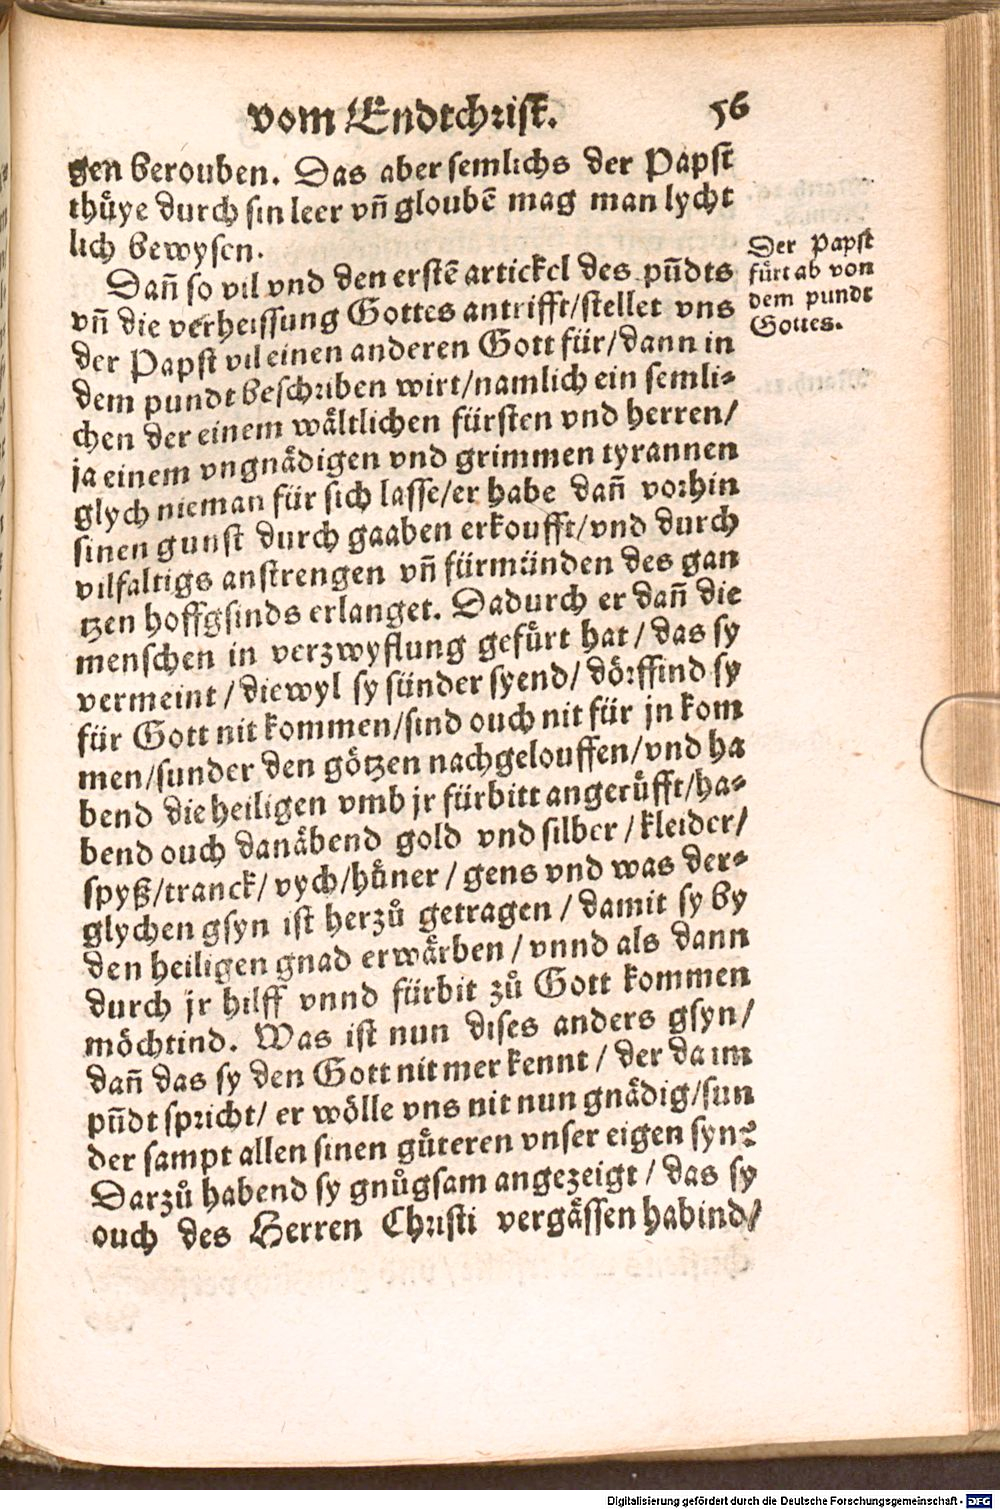 vom Endtchrist. 56
gen berouben. Das aber semlichs der Papst
thüye durch sin leer vñ gloubẽ mag man lycht
lich bewysen.
Der Papst
fürt ab von
dem pundt
Gottes.
Dañ so vil vnd den erstẽ artickel des pũdts
vñ die verheissung Gottes antrifft/stellet vns
der Papst vil einen anderen Gott für/dann in
dem pundt beschriben wirt/namlich ein semli⸗
chen der einem wältlichen fürsten vnd herren/
ja einem vngnädigen vnd grimmen tyrannen
glych nieman für sich lasse/er habe dañ vorhin
sinen gunst durch gaaben erkoufft/vnd durch
vilfaltigs anstrengen vñ fürmünden des gan
tzen hoffgsinds erlanget. Dadurch er dañ die
menschen in verzwyflung gefürt hat/das sy
vermeint/diewyl sy sünder syend/dörffind sy
für Gott nit kommen/sind ouch nit für jn kom
men/sunder den götzen nachgelouffen/vnd ha
bend die heiligen vmb jr fürbitt angerüfft/ha⸗
bend ouch danäbend gold vnd silber/kleider/
spyß/tranck/vych/hüner/gens vnd was der⸗
glychen gsyn ist herzů getragen/damit sy by
den heiligen gnad erwärben/vnnd als dann
durch jr hilff vnnd fürbit zů Gott kommen
möchtind. Was ist nun dises anders gsyn/
dañ das sy den Gott nit mer kennt/der da im
pũdt spricht/er wölle vns nit nun gnädig/sun
der sampt allen sinen güteren vnser eigen syn?
Darzů habend sy gnůgsam angezeigt/das sy
ouch des Herren Christi vergässen habind/
Digitalisierung gefördert durch die Deutsche Forschungsgemeinschaft - DFG